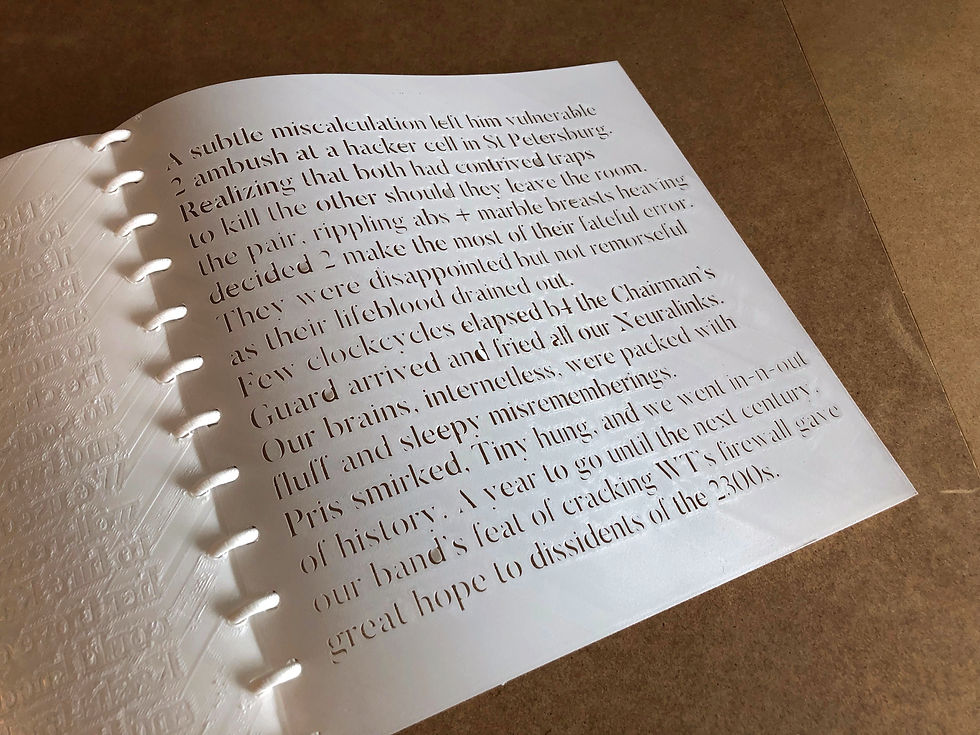 A subtle miscalculation left him vulnerable
2 ambush at a hacker cell in St Petersburg.
Realizing that both had contrived traps
to kill the other should they leave the room.
the pair, rippling abs + marble breasts heaving
decided 2 make the most of their fateful error.
They were disappointed but not remorseful
as their lifeblood drained out.
Few clockcycles elapsed b4 the Chairman's
Guard arrived and fried all our Neuralinks.
Our brains, internetless, were packed with
fluff and sleepy misrememberings.
Pris smirked, Tiny hung, and we went in-n-out
of history. A year to go until the next century,
our band's feat of cracking WT's firewall gave
great hope to dissidents of the 2300s.